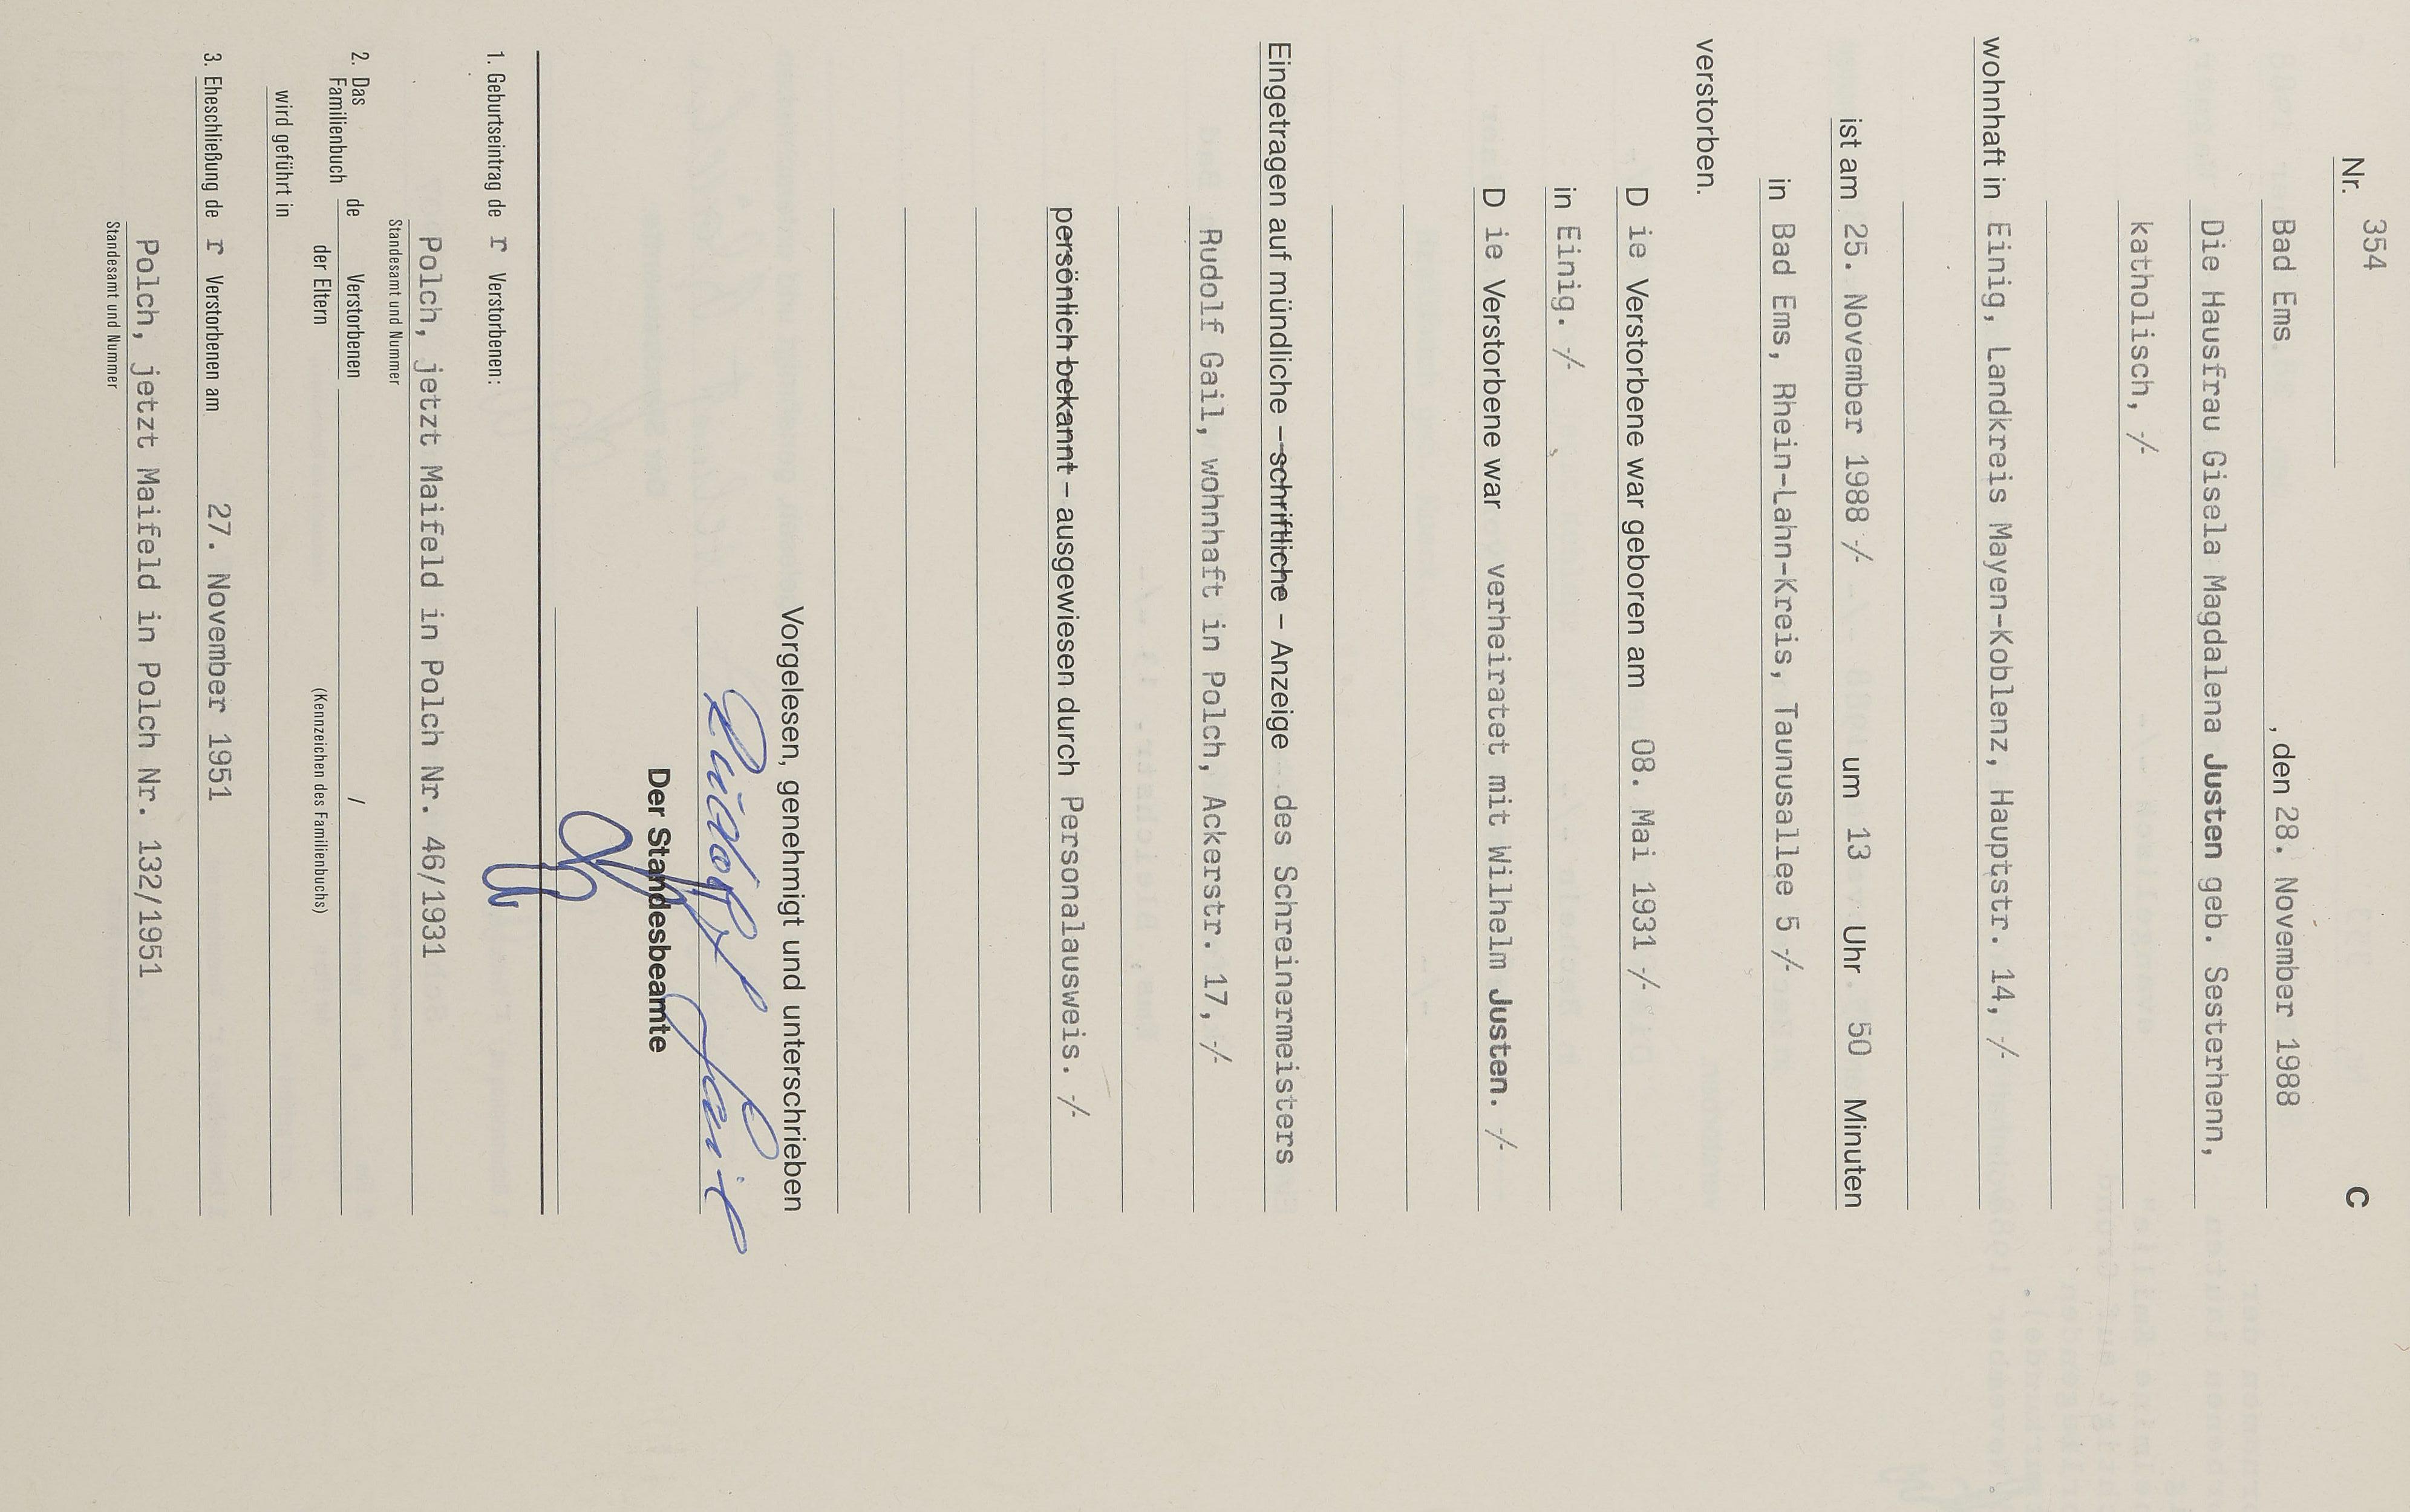 C
Nr. 354
Bad Ems , den 28. November 1988
Die Hausfrau Gisela Magdalena Justen geb. Sesterhenn,
katholisch, -/-
wohnhaft in Einig, Landkreis Mayen-Koblenz, Hauptstr. 14, -/-
ist am 25. November 1988 -/- um 13 Uhr 50 Minuten
in Bad Ems, Rhein-Lahn-Kreis, Taunusallee 5 -/-
verstorben.
D ie Verstorbene war geboren am 08. Mai 1931 -/-
in Einig. -/-
D ie Verstorbene war verheiratet mit Wilhelm Justen. -/-
Eingetragen auf mündliche – schriftliche – Anzeige des Schreinermeisters
Rudolf Gail, wohnhaft in Polch, Ackerstr. 17, -/-
persönlich bekannt – ausgewiesen durch Personalausweis. -/-
Vorgelesen, genehmigt und unterschrieben
Rudolf Gail
Der Standesbeamte
1. Geburtseintrag de r Verstorbenen:
Polch, jetzt Maifeld in Polch Nr. 46/1931
Standesamt und Nummer
2. Das Familienbuch de Verstorbenen /
der Eltern (Kennzeichen des Familienbuchs)
wird geführt in
3. Eheschließung de r Verstorbenen am 27. November 1951
Polch, jetzt Maifeld in Polch Nr. 132/1951
Standesamt und Nummer